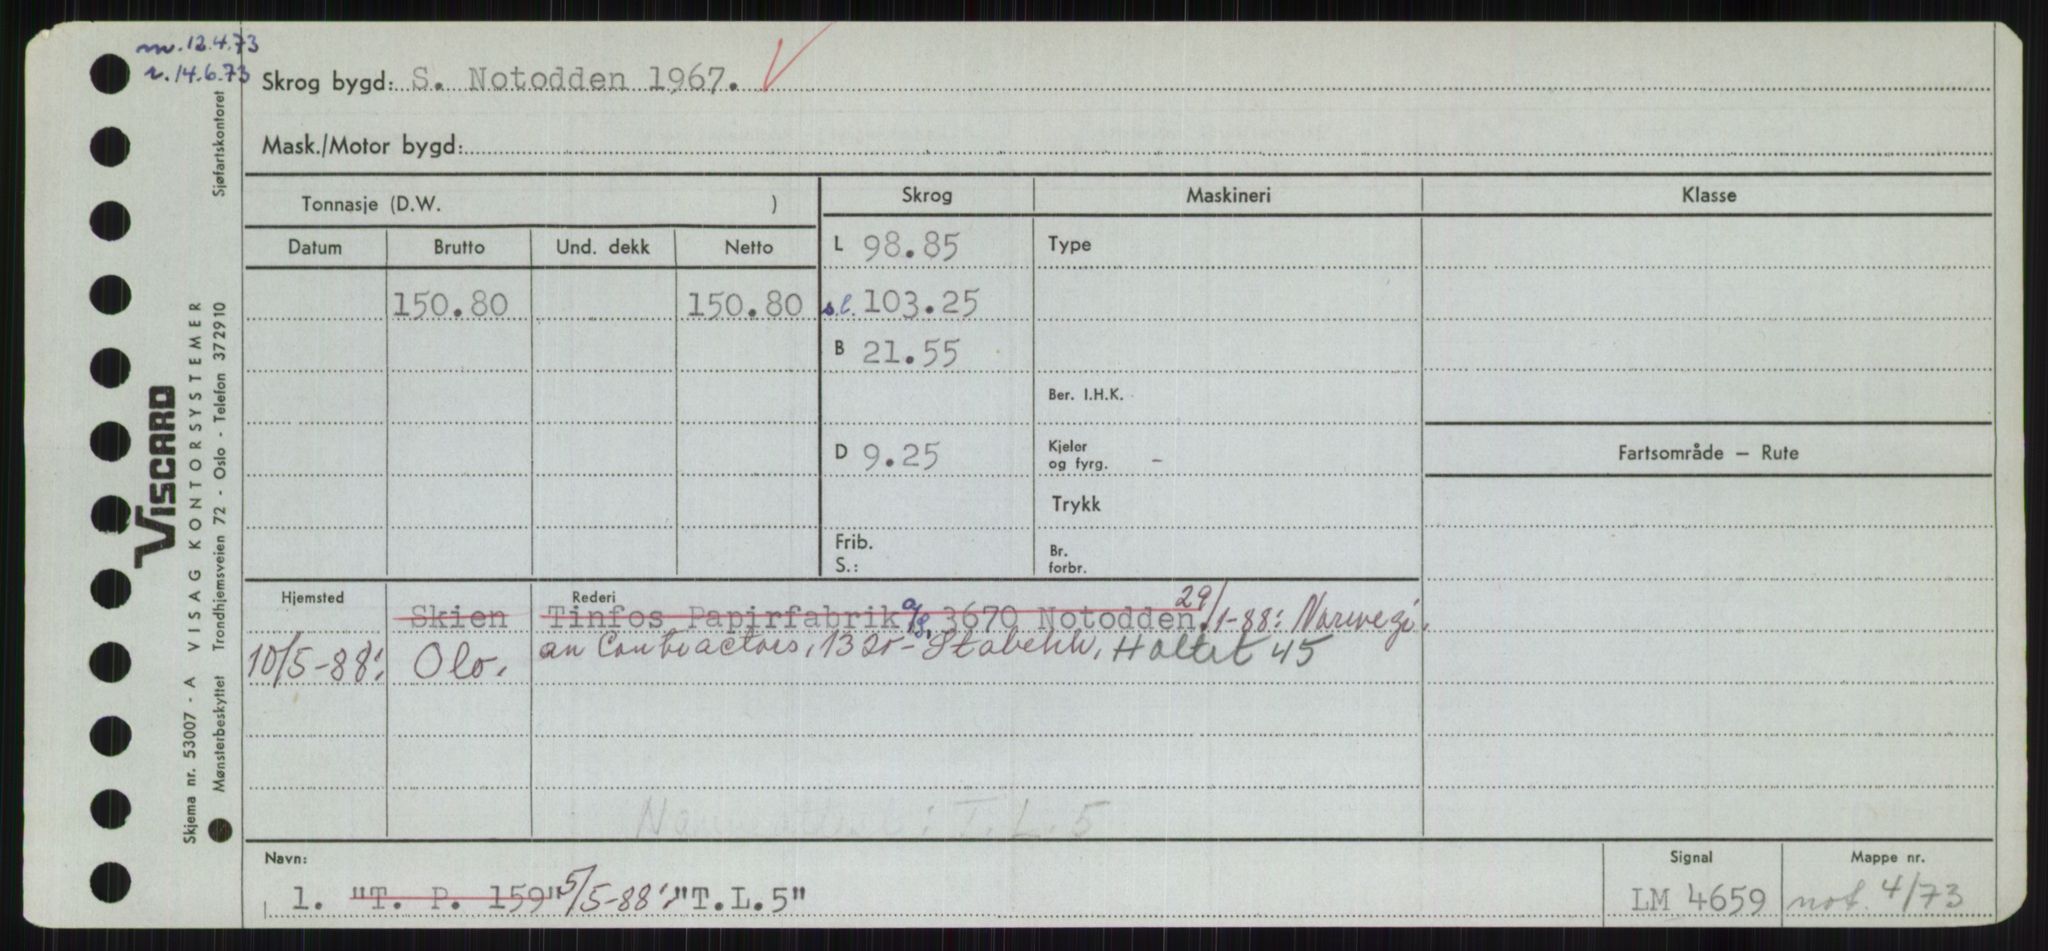 nv. 12.4.73
r. 14.6.73
Skrog bygd: S. Notodden 1967.
Mask./Motor bygd:
Tonnasje (D.W. )
Skrog
Maskineri
Klasse
Datum
Brutto
Und. dekk
Netto
L 98.85
Type
150.80
150.80
s.l. 103.25
B 21.55
Ber. I.H.K.
D 9.25
Kjeler
og fyrg. -
Fartsområde – Rute
Trykk
Frib.
S.:
Br.
forbr.
Hjemsted
Rederi
Skien
Tinfos Papirfabrik a/s, 3670 Notodden. 29/1-88: Norwegi.
10/5-88: Olo.
an Contractors, 1320 - Stabekk, Holtet 45
: T.L.5
Navn:
1. "T. P. 159" 5/5-88: "T.L.5"
Signal
LM 4659
Mappe nr.
not. 4/73
Sjøfartskontoret
VISCARD
VISAG KONTORSYSTEMER
Trondhjemsveien 72 - Oslo - Telefon 372910
Skjema nr. 53007 - A
Mønsterbeskyttet